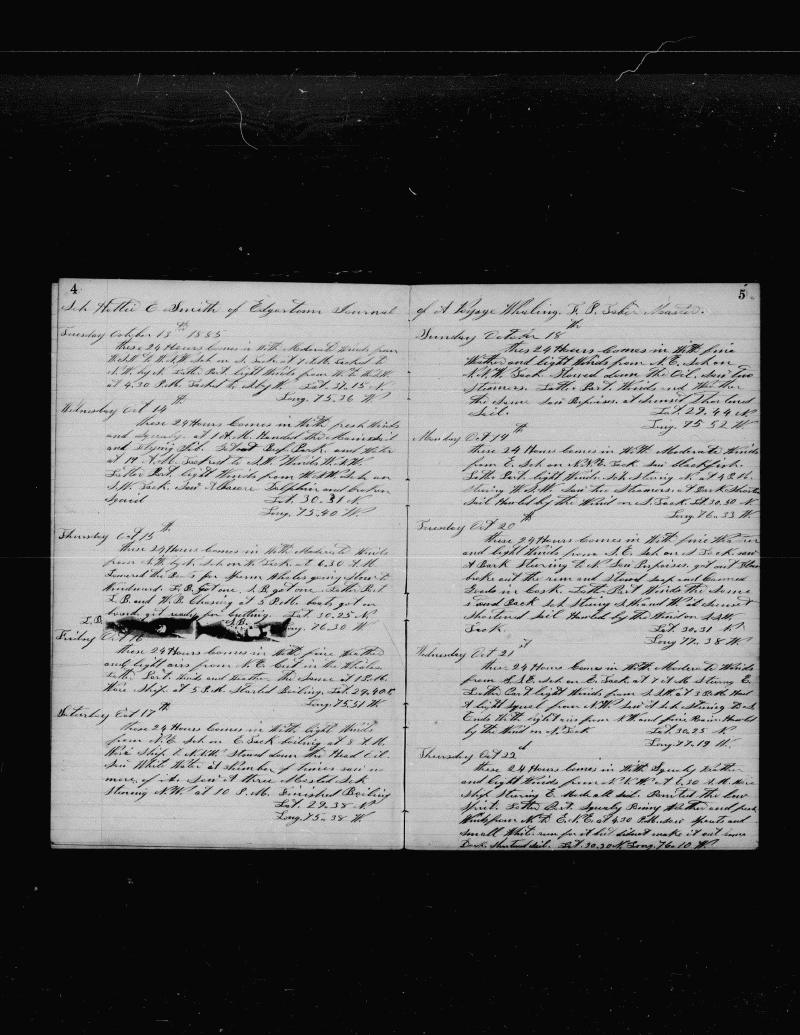 4
Sch Hattie E Smith of Edgartown Journal
Tuesday October 13th 1885
these 24 Hours Comes in With Moderate Winds from
at 4.30 P.M. Tacked to Lat. 31.15 N
Long. 75.36 W
Wednesday Oct 14th
these 24 Hours Comes in With fresh Winds
and Squaly. at 1 A.M. Handed the Mainsail
and Flying Jib.
Latter Part light Winds from W.S.W. Sch on
S.W. Tack. Saw Albacore Dolphin and broken
Squid Lat. 30.31 N
Long. 75.40 W
Thursday Oct 15th
these 24 Hours Comes in With Moderate Winds
from N.W. by N. Sch on W. Tack at 6.30 A.M.
Lowered the Boats for Sperm Whales going slow to
Windward. L.B. Got one. S.B. got one. Latter Part
L.B. and W.B. Chasing at 5 P.M. boats got on
board, got ready for cutting. Lat. 30.25 N
L.B. S.B. Long. 76.30 W
Friday Oct 16
these 24 Hours Comes in With fine Weather
and light airs from N.E. Cut in the Whales
Latter Part Winds and Weather the Same at 1 P.M.
Wore Ship. at 5 P.M. Started Boiling. Lat. 29.40
Long. 75.51 W
Saturday Oct 17th
these 24 Hours Comes in With light Winds
from N.E. Sch on E Tack boiling at 8 A.M.
Wore Ship to N.N.W. Stowed down the Head Oil.
Saw White Water at a number of times saw no
more of it. Saw a three Masted Sch
Steering N.W. at 10 P.M. Finished Boiling
Lat. 29.38 N
Long. 75.38 W
5
of A Voyage Whaling. Master.
Sunday October 18th
these 24 Hours Comes in With fine
Weather and light Winds from N.E. Sch on
N.N.W. Tack Stowed down the Oil. Saw two
Steamers. Latter Part Winds and Weather
the Same Saw Porpoises. at Sunset Shortened
Sail. Lat 29.44 N
Long. 75 52 W
Monday Oct 19th
these 24 Hours Comes in With Moderate Winds
from E. Sch on N.N.E. Tack Saw blackfish.
Latter Part light Winds. Sch Steering N. at 4 P.M.
Steering W.S.W. saw two Steamers. at Dark Shorten
Sail Hauled by the Wind on S. Tack Lat 30.30 N
Long. 76.33 W
Tuesday Oct 20th
these 24 Hours Comes in With fine Weather
and light Winds from S.E. Sch on S Tack saw
A Bark Steering to N. Saw Porpoises. got out
broke out the run and Stowed Soap and Canned
Goods in Cask. Latter Part Winds the Same
Shortened Sail Hauled by the Wind on S.S.W
Tack. Lat. 30.31 N
Long 77.38 W
Wednesday Oct 21st
these 24 Hours Comes in With Moderate Winds
from S.S.E. Sch on E. Tack at 7 A.M. Steering E.
Latter Part light Winds from S.S.W. at 3 P.M. Had
A light Squal from N.W. Saw A Sch Steering
Ends With light airs from N.W and fine Rain Hauled
by the Wind on N. Tack Lat. 30.25 N
Long 77.19 W.
Thursday Oct 22d
these 24 Hours Comes in With Squaly Weather
and light Winds from at 6.30 A.M. Wore
Ship Steering E. Made all Sail. Painted the
Latter Part. Squaly Rainy Weather and fresh
Winds from at 4.30 P.M. Saw Spouts and
Small White run for it but didnt make it out came
Dark Shortened Sail. Lat. 30.30 N. Long. 76.10 W.